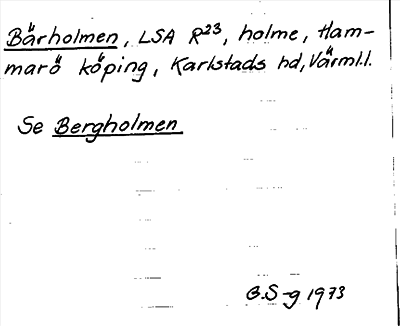 Bärholmen, LSA R²³, holme, Ham-
marö köping, Karlstads hd, Värml.l.
Se Bergholmen
G.S-g 1973